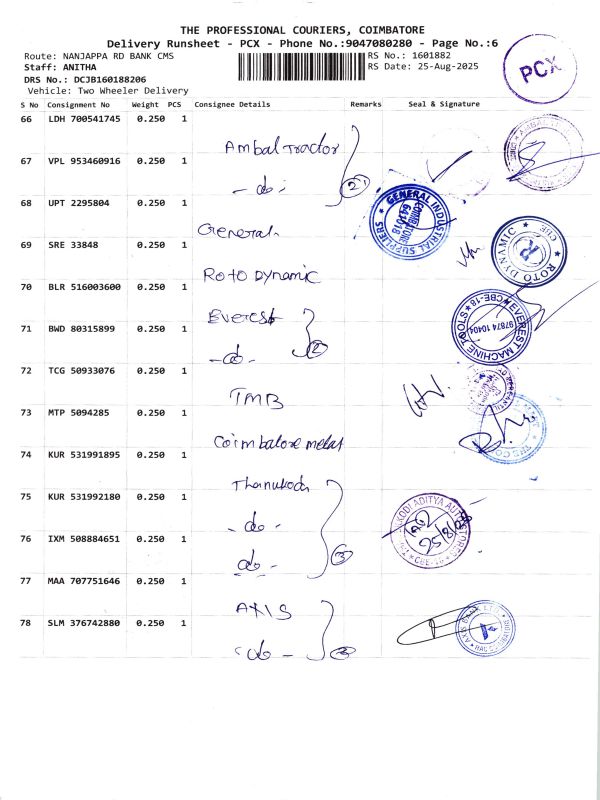 THE PROFESSIONAL COURIERS, COIMBATORE
Delivery Runsheet - PCX - Phone No.:9047080280 - Page No.:6
Route: NANJAPPA RD BANK CMS
RS No.: 1601882
Staff: ANITHA
RS Date: 25-Aug-2025
DRS No.: DCJB160188206
Vehicle: Two Wheeler Delivery
PCX
S No Consignment No Weight PCS Consignee Details Remarks Seal & Signature
66 LDH 700541745 0.250 1
Ambal Tractor
67 VPL 953460916 0.250 1
- do - 2
68 UPT 2295804 0.250 1
General
GENERAL INDUSTRIAL SUPPLIERS
COIMBATORE 641018
69 SRE 33848 0.250 1
Roto Dynamic
ROTO DYNAMIC CBE
70 BLR 516003600 0.250 1
Everest
71 BWD 80315899 0.250 1
- do - 2
EVEREST MACHINE TOOLS CBE-18
97874 10404
72 TCG 50933076 0.250 1
TMB
73 MTP 5094285 0.250 1
Coimbatore metal
74 KUR 531991895 0.250 1
75 KUR 531992180 0.250 1
- do -
KODI ADITYA AUTO STORES
25/8/25
76 IXM 508884651 0.250 1
do - 3
77 MAA 707751646 0.250 1
AXIS
78 SLM 376742880 0.250 1
- do - 2
AXIS BANK LTD